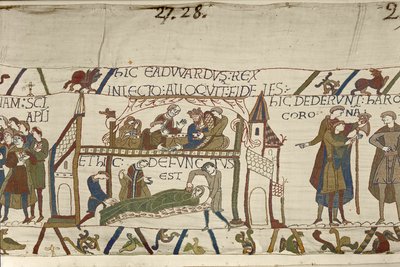 27. 28.
2
NAM: SCI
APLI
hIC EADWARDVS: REX
IN LECTO: ALLOQVIT: FIDELES:
ET hIC: DEFVNCTVS
EST
hIC DEDERVNT: hARO
CORONA